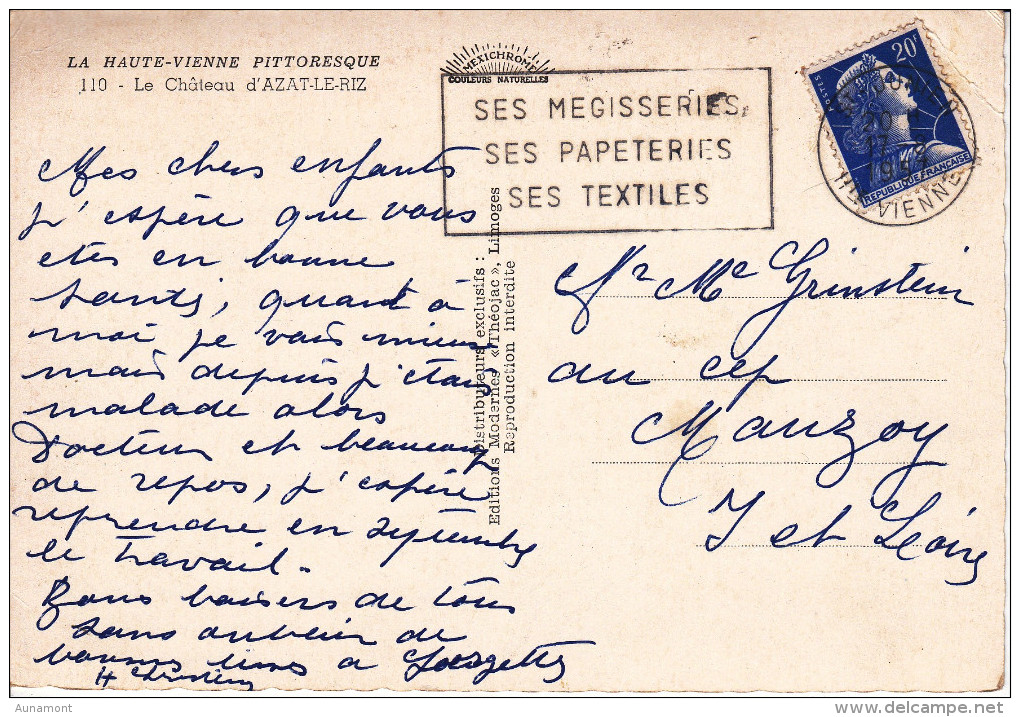 LA HAUTE-VIENNE PITTORESQUE
110 - Le Château d'AZAT-LE-RIZ
MEXICHROME
COULEURS NATURELLES
SES MEGISSERIES,
SES PAPETERIES
SES TEXTILES
20F
POSTES
REPUBLIQUE FRANÇAISE
20 H
17
HTE VIENNE
Mes chers enfants
j'espère que vous
etes en bonne
santé, quant à
moi je vais mieux
mais depuis j'etais
malade alors
Docteur et beaucoup
de repos, j'espère
reprendre en septembre
le travail.
Bons baisers de tous
sans oublier de
bonnes a Georgette
Distributeurs exclusifs :
Editions Modernes «Théojac», Limoges
Reproduction interdite
Mr Me Grinstein
au cep
Mauzoy
I et Loire
Aunamont
delcampe.net